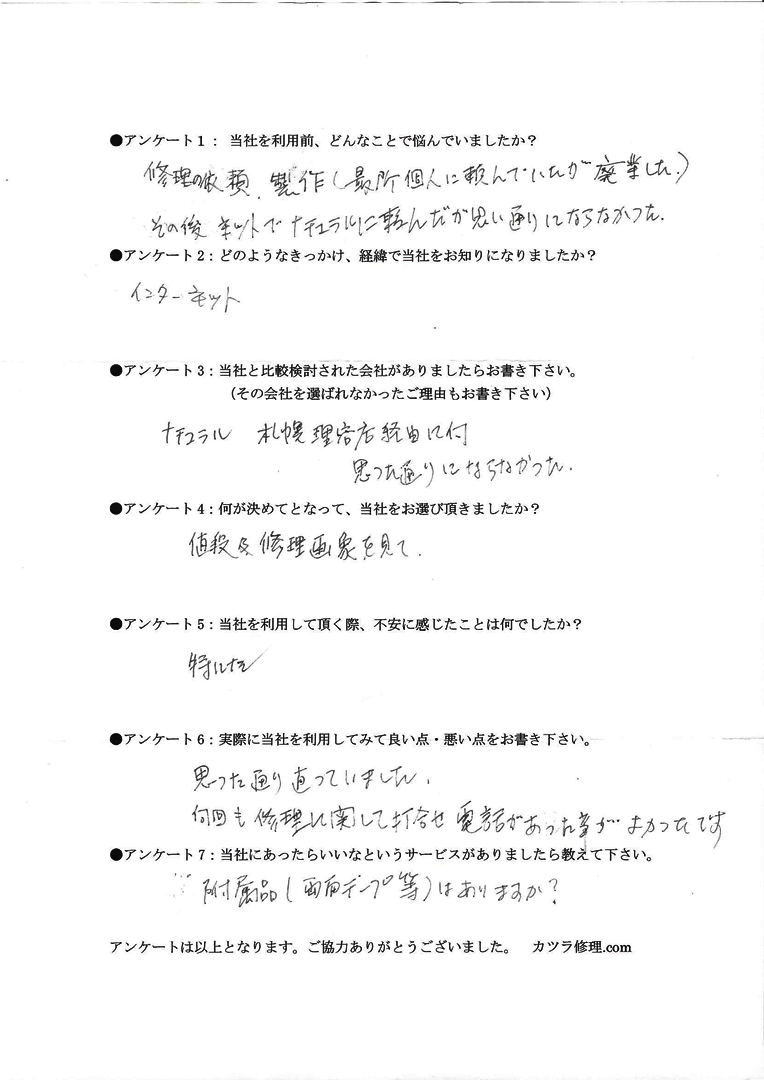 ●アンケート1： 当社を利用前、どんなことで悩んでいましたか？
修理の依頼、製作(最所個人に頼んでいたが廃業した。)
その後ネットでナチュラルに頼んだが思い通りにならなかった.
●アンケート2：どのようなきっかけ、経緯で当社をお知りになりましたか？
インターネット
●アンケート3：当社と比較検討された会社がありましたらお書き下さい。
（その会社を選ばれなかったご理由もお書き下さい）
ナチュラル 札幌理容店経由に付
思った通りにならなかった.
●アンケート4：何が決めてとなって、当社をお選び頂きましたか？
値段及修理画象を見て.
●アンケート5：当社を利用して頂く際、不安に感じたことは何でしたか？
特になし
●アンケート6：実際に当社を利用してみて良い点・悪い点をお書き下さい。
思った通り直っていました.
何回も修理に関して打合せ電話があった事がよかったです
●アンケート7：当社にあったらいいなというサービスがありましたら教えて下さい。
附属品(両面テープ等)はありますか?
アンケートは以上となります。ご協力ありがとうございました。 カツラ修理.com